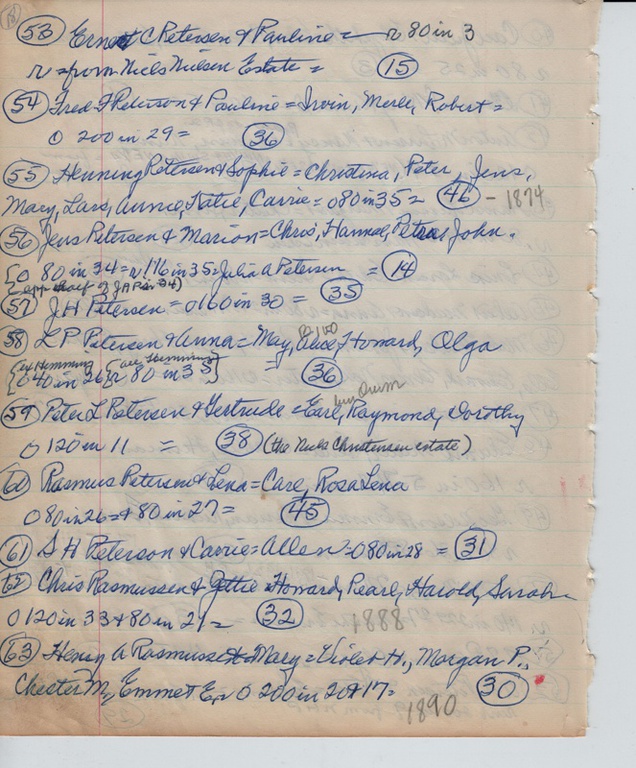 53 Ernest C Petersen & Pauline = r 80 in 3
r = from Niels Nielsen Estate = 15
54 Fred F Peterson & Pauline = Irvin, Merle, Robert =
O 200 in 29 = 36
55 Henning Petersen & Sophie = Christina, Peter, Jens,
Mary, Lars, Annie, Katie, Carrie = O 80 in 35 = 46 - 1874
56 Jens Petersen & Marion = Chris, Hannae, John.
{O 80 in 34 = r 116 in 35 = Julia A Petersen = 14
57 J H Petersen = O 160 in 30 = 35
58 L P Petersen & Anna = May, Alice, Howard, Olga
{ex Hemming {ace Hemming}
{O 40 in 26 {r 80 in 35} = 36
59 Peter L Petersen & Gertrude = Earl, Raymond, Dorothy
O 120 in 11 = 38 (the Niels Christensen estate)
60 Rasmus Petersen & Lena = Carl, Rosa Lena
O 80 in 26 = & 80 in 27 = 45
61 S H Peterson & Carrie = Allen = O 80 in 28 = 31
62 Chris Rasmussen & = Howard, Pearl, Harold, Sarah
O 120 in 33 & 80 in 21 = 32 1888
63 Henry A Rasmussen Mary = Violet H., Morgan P.,
Chester M, Emmet E, = O 200 in 20 & 17 = 30
1890